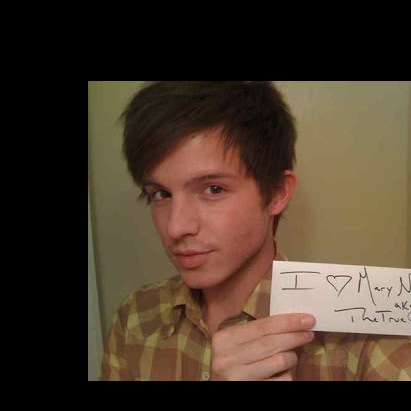 I ♡ Mary N
aka
TheTrue